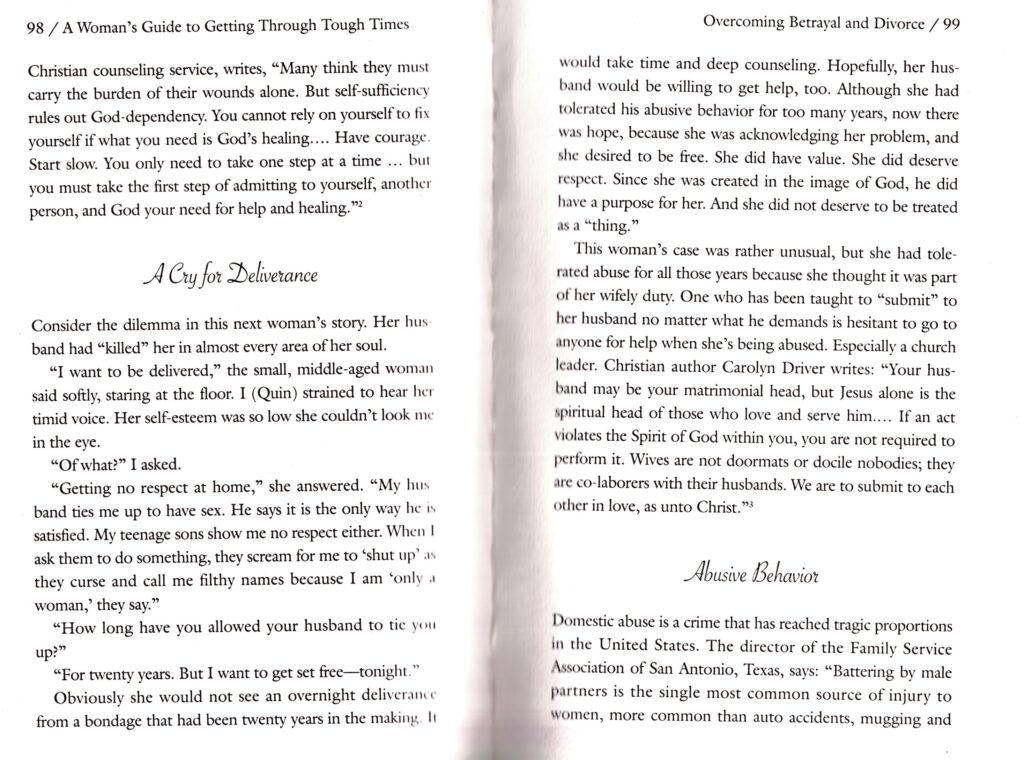 98 / A Woman's Guide to Getting Through Tough Times
Christian counseling service, writes, “Many think they must
carry the burden of their wounds alone. But self-sufficiency
rules out God-dependency. You cannot rely on yourself to fix
yourself if what you need is God's healing.... Have courage.
Start slow. You only need to take one step at a time ... but
you must take the first step of admitting to yourself, another
person, and God your need for help and healing.”2
A Cry for Deliverance
Consider the dilemma in this next woman's story. Her hus-
band had “killed” her in almost every area of her soul.
“I want to be delivered,” the small, middle-aged woman
said softly, staring at the floor. I (Quin) strained to hear her
timid voice. Her self-esteem was so low she couldn't look me
in the eye.
“Of what?” I asked.
“Getting no respect at home,” she answered. “My hus
band ties me up to have sex. He says it is the only way he is
satisfied. My teenage sons show me no respect either. When I
ask them to do something, they scream for me to ‘shut up’ as
they curse and call me filthy names because I am ‘only a
woman,’ they say.”
“How long have you allowed your husband to tie you
up?”
“For twenty years. But I want to get set free—tonight.”
Obviously she would not see an overnight deliverance
from a bondage that had been twenty years in the making. It
Overcoming Betrayal and Divorce / 99
would take time and deep counseling. Hopefully, her hus-
band would be willing to get help, too. Although she had
tolerated his abusive behavior for too many years, now there
was hope, because she was acknowledging her problem, and
she desired to be free. She did have value. She did deserve
respect. Since she was created in the image of God, he did
have a purpose for her. And she did not deserve to be treated
as a “thing.”
This woman's case was rather unusual, but she had tole-
rated abuse for all those years because she thought it was part
of her wifely duty. One who has been taught to “submit” to
her husband no matter what he demands is hesitant to go to
anyone for help when she's being abused. Especially a church
leader. Christian author Carolyn Driver writes: “Your hus-
band may be your matrimonial head, but Jesus alone is the
spiritual head of those who love and serve him.... If an act
violates the Spirit of God within you, you are not required to
perform it. Wives are not doormats or docile nobodies; they
are co-laborers with their husbands. We are to submit to each
other in love, as unto Christ.”3
Abusive Behavior
Domestic abuse is a crime that has reached tragic proportions
in the United States. The director of the Family Service
Association of San Antonio, Texas, says: “Battering by male
partners is the single most common source of injury to
women, more common than auto accidents, mugging and